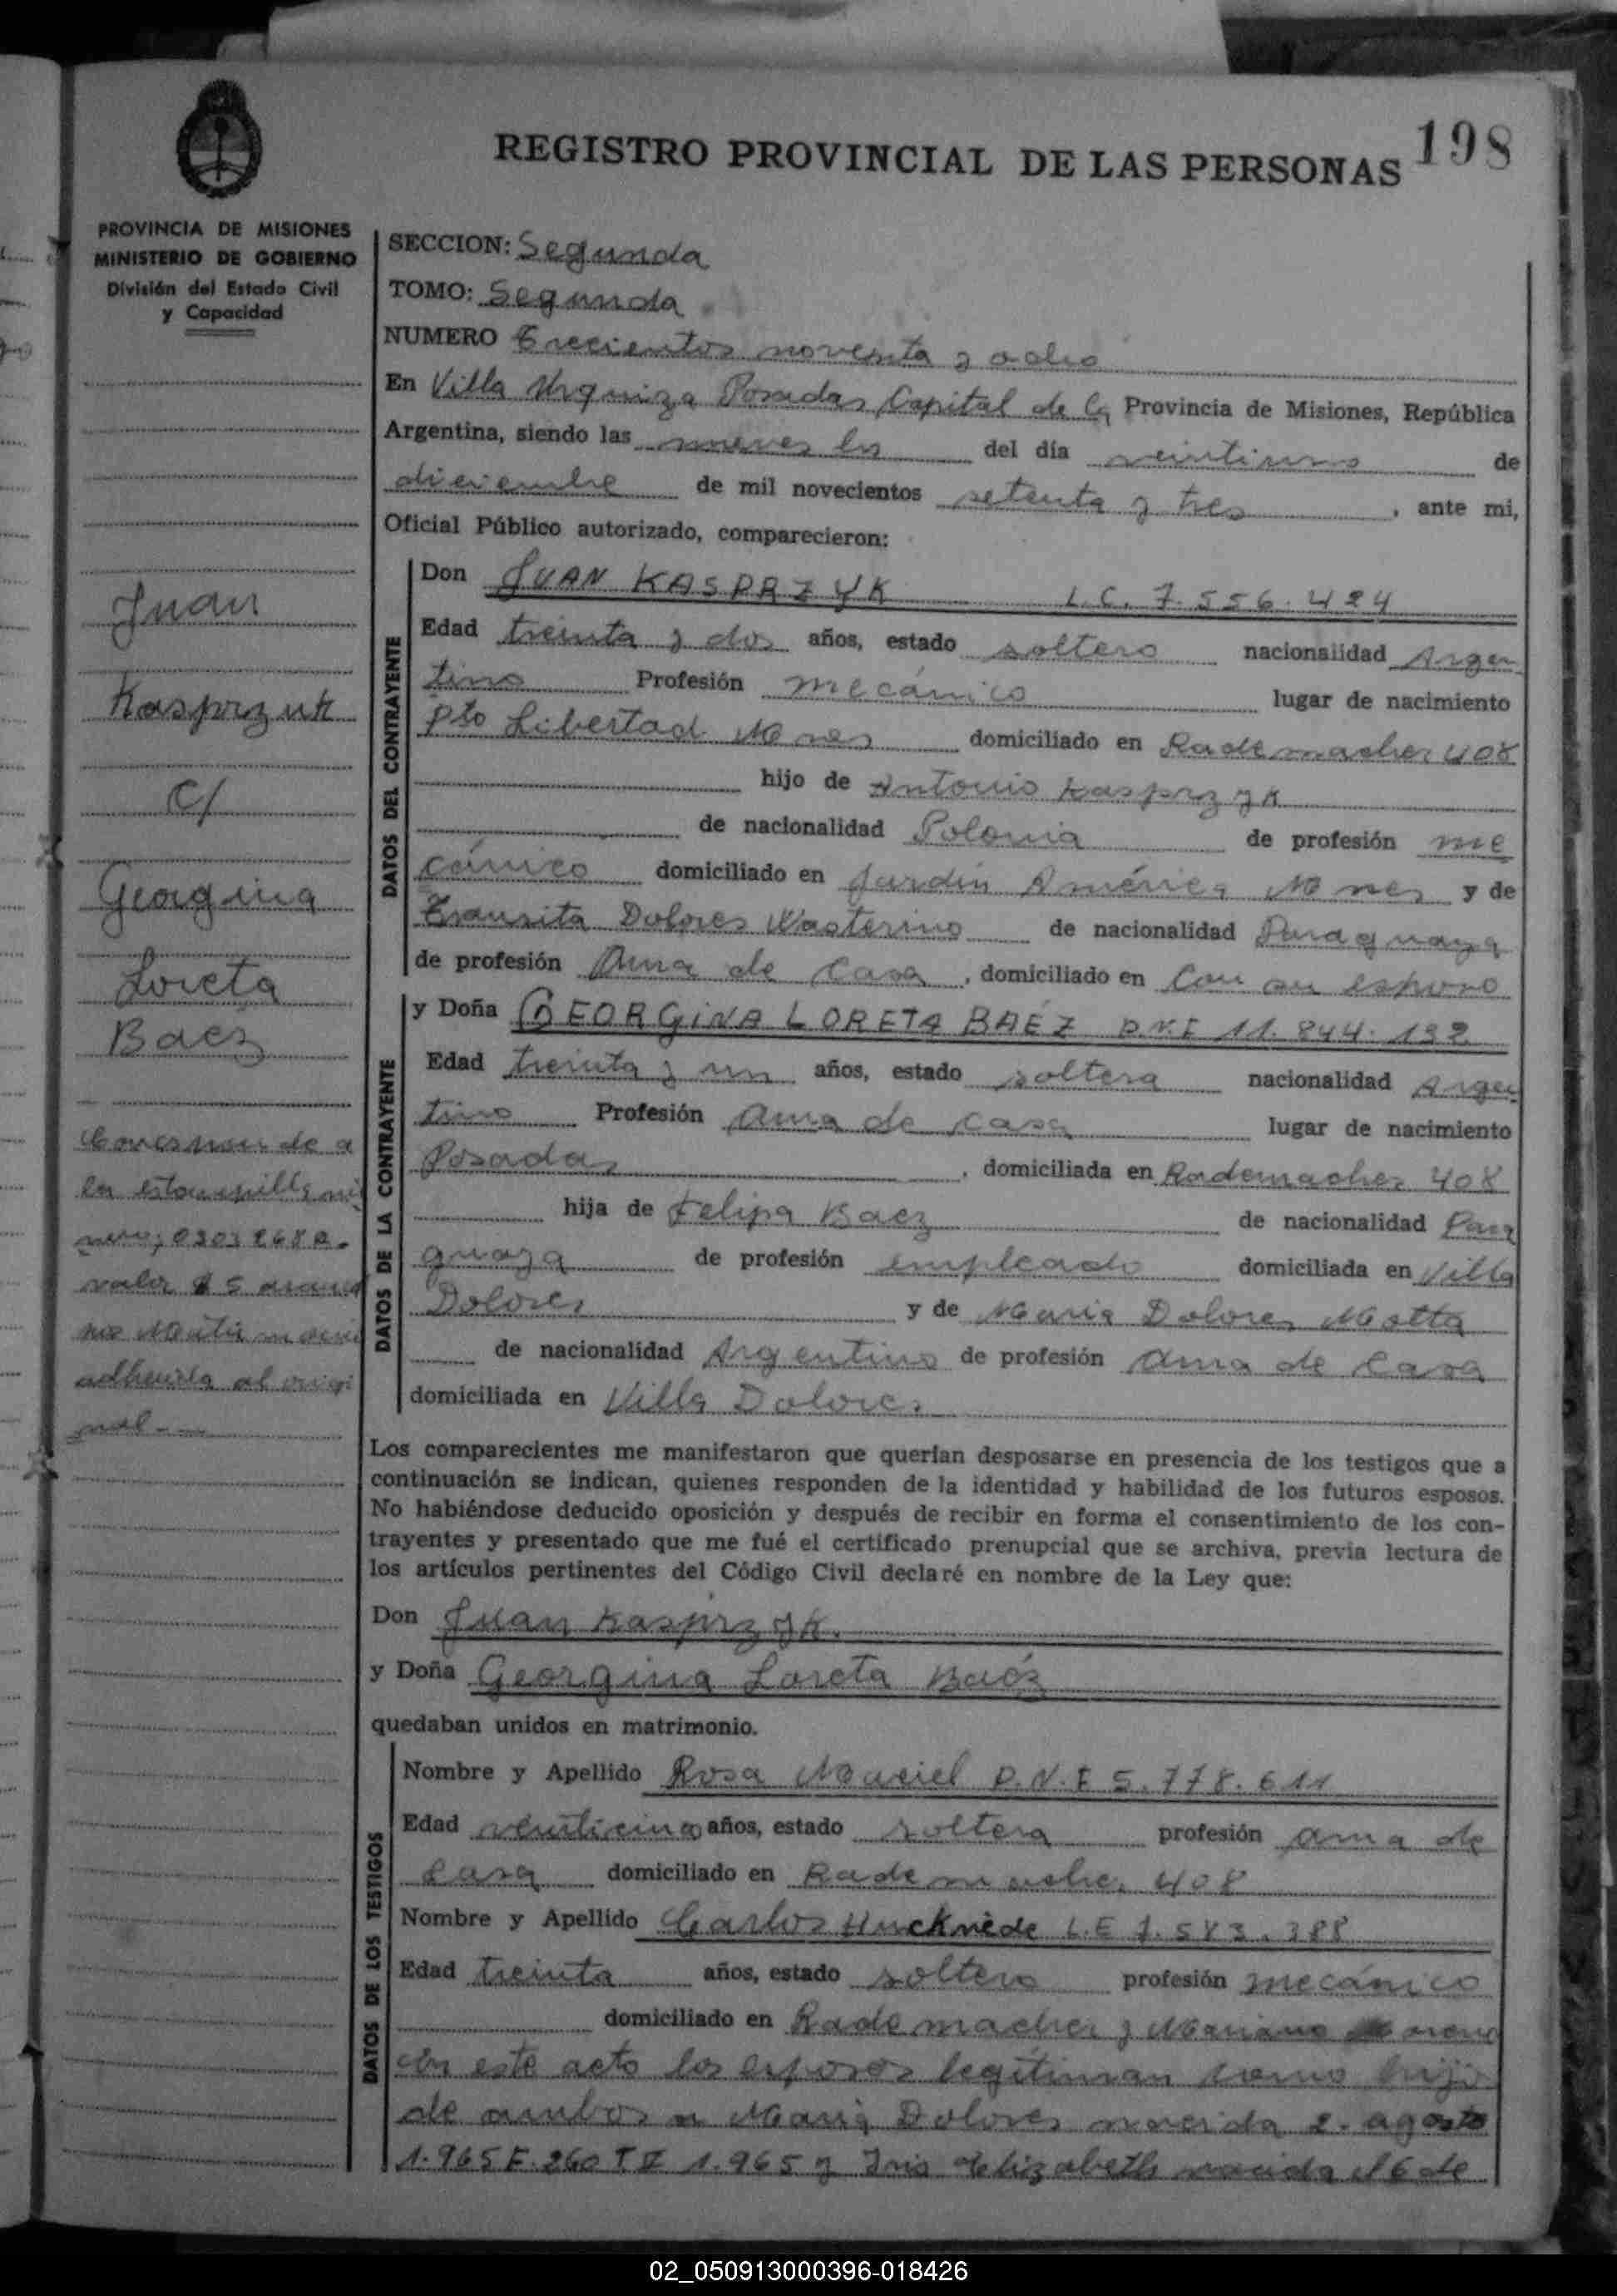 198
REGISTRO PROVINCIAL DE LAS PERSONAS
PROVINCIA DE MISIONES
MINISTERIO DE GOBIERNO
División del Estado Civil
y Capacidad
Juan
Kasprzuk
C/
Georgina
Loreta
Baez
la estampilla nú
mero; 0303268
valor $ 5
adherida al origi
nal.-
SECCION: Segunda
TOMO: Segunda
NUMERO Trecientos noventa y ocho
En Villa Urquiza Posadas Capital de la Provincia de Misiones, República
Argentina, siendo las nueves hs del día veintiuno de
diciembre de mil novecientos setenta y tres, ante mi,
Oficial Público autorizado, comparecieron:
DATOS DEL CONTRAYENTE
Don JUAN KASPRZYK L.C. 7.556.424
Edad treinta y dos años, estado soltero nacionalidad Argen
tino Profesión mecánico lugar de nacimiento
Pto Libertad Mnes domiciliado en Rademacher 408
hijo de Antonio Kasprzyk
de nacionalidad Polonia de profesión me
cánico domiciliado en Jardín América Mnes y de
Transita Dolores Wasterino de nacionalidad Paraguaya
de profesión Ama de casa, domiciliado en Con su esposo
DATOS DE LA CONTRAYENTE
y Doña GEORGINA LORETA BAÉZ D.N.I 11.844.132
Edad treinta y un años, estado soltera nacionalidad Argen
tino Profesión Ama de casa lugar de nacimiento
Posadas, domiciliada en Rademacher 408
hija de Felipa Baez de nacionalidad Para
guaya de profesión empleado domiciliada en Villa
Dolores y de Maria Dolores Motta
de nacionalidad Argentino de profesión Ama de Casa
domiciliada en Villa Dolores
Los comparecientes me manifestaron que querían desposarse en presencia de los testigos que a
continuación se indican, quienes responden de la identidad y habilidad de los futuros esposos.
No habiéndose deducido oposición y después de recibir en forma el consentimiento de los con-
trayentes y presentado que me fué el certificado prenupcial que se archiva, previa lectura de
los artículos pertinentes del Código Civil declaré en nombre de la Ley que:
Don Juan Kasprzyk.
y Doña Georgina Loreta Baéz
quedaban unidos en matrimonio.
DATOS DE LOS TESTIGOS
Nombre y Apellido Rosa Maciel D.N.I 5.778.611
Edad veinticinco años, estado soltera profesión ama de
casa domiciliado en Rademacher 408
Nombre y Apellido Carlos Huckriede L.E 7.583.388
Edad treinta años, estado soltero profesión mecánico
domiciliado en Rademacher y Mariano Moreno
en este acto los esposos legitiman como hijo
de ambos a Maria Dolores nacida 2. agosto
1.965 F. 260 T II 1.965 y Iris Elizabeth nacida el 6 de
02_050913000396-018426